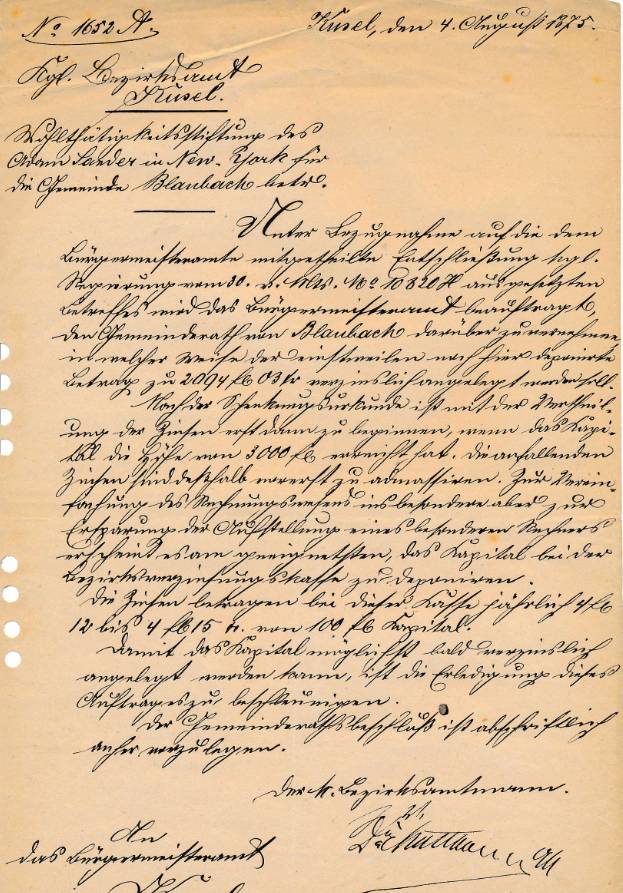 No 1652 A.
Kusel, den 4. August 1875.
Kgl. Bezirksamt
Kusel.
Wohlthätigkeitsstiftung des
Adam Sander in New-York für
die Gemeinde Blaubach betr.
Unter Bezugnahme auf die dem
Bürgermeisteramte mitgetheilte Entschließung kgl.
Regierung vom 30. v. Mts. No 10820 H ausgesetzten
Betreffes wird das Bürgermeisteramt beauftragt,
den Gemeinderath von Blaubach darüber zu vernehmen,
in welcher Weise der einstweilen noch hier deponirte
Betrag zu 2094 fl 03 kr verzinslich angelegt werden soll.
Nach der Schenkungsurkunde ist mit der Vertheil-
ung der Zinsen erst dann zu beginnen, wenn das Kapi-
tal die Höhe von 3000 fl. erreicht hat. Die anfallenden
Zinsen sind deßhalb vorerst zu admassiren. Zur Verein-
fachung des Rechnungswesens insbesondere aber zur
Ersparung der Aufstellung eines besonderen Rechners
erscheint es am geeignetsten, das Kapital bei der
Bezirks kasse zu deponiren.
Die Zinsen betragen bei dieser Kasse jährlich 4 fl
12 bis 4 fl 15 kr. von 100 fl Kapital.
Damit das Kapital möglichst bald verzinslich
angelegt werden kann, ist die Erledigung dieses
Auftrages zu beschleunigen.
Der Gemeinderathsbeschluß ist abschriftlich
anher vorzulegen.
Der k. Bezirksamtmann.
An
das Bürgermeisteramt